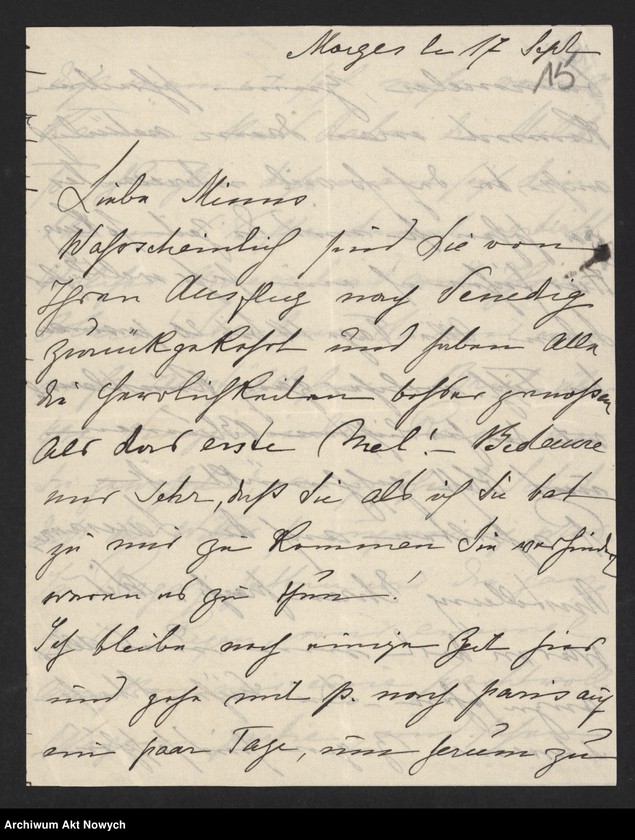 Morges le 17 Sept
15
Liebe Minus
Wahrscheinlich sind Sie von
Ihren Ausflug nach Venedig
zurückgekehrt und haben alle
die Herrlichkeiten besser genoßen
als das erste Mal! – Bedaure
nur sehr, daß Sie als ich Sie bat
zu mir zu kommen Sie verhindert
waren es zu thun!
Ich bleibe noch einige Zeit hier
und gehe mit P. nach Paris auf
ein paar Tage, um herum zu
Archiwum Akt Nowych